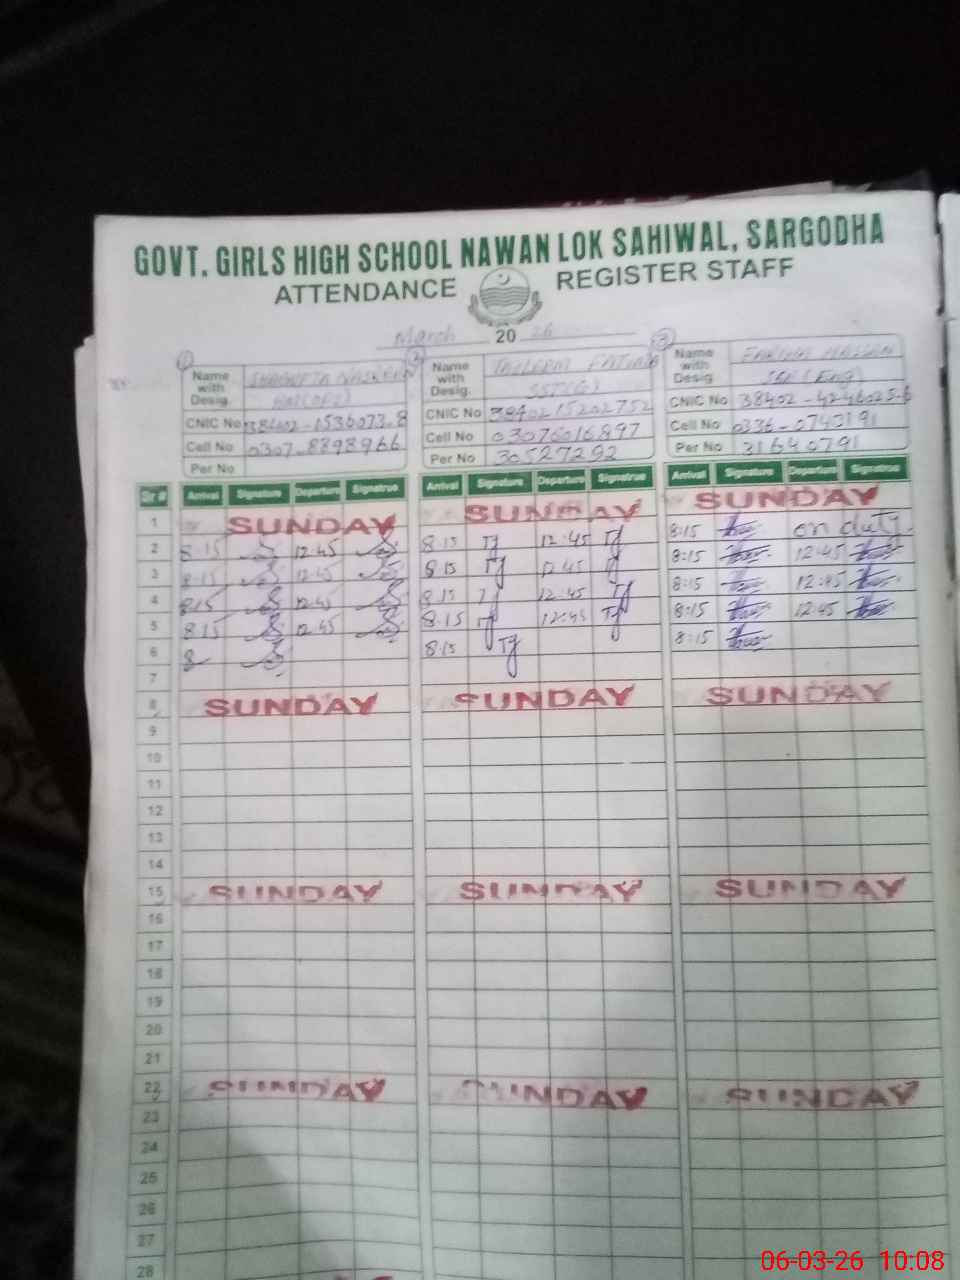 GOVT. GIRLS HIGH SCHOOL NAWAN LOK SAHIWAL, SARGODHA
ATTENDANCE REGISTER STAFF
March 20 26
1 2 3
Name with Desig. Name with Desig. SST(G) Name with Desig. SSE (Eng)
CNIC No 38402-0536073-8 CNIC No 3840215202752 CNIC No 38402-4246025-6
Cell No 0307-8898966 Cell No 03076016897 Cell No 0336-0740191
Per No Per No 30527292 Per No 31640791
Sr # Arrival Signature Departure Signatrue Arrival Signature Departure Signatrue Arrival Signature Departure Signatrue
1 SUNDAY SUNDAY SUNDAY
2 8:15 12:45 8:15 Tf 12:45 Tf 8:15 on duty
3 8:15 12:45 8:15 Tf 12:45 Tf 8:15 12:45
4 8:15 12:45 8:15 Tf 12:45 Tf 8:15 12:45
5 8:15 12:45 8:15 Tf 12:45 Tf 8:15 12:45
6 8:15 Tf 8:15
7
8 SUNDAY SUNDAY SUNDAY
9
10
11
12
13
14
15 SUNDAY SUNDAY SUNDAY
16
17
18
19
20
21
22 SUNDAY SUNDAY SUNDAY
23
24
25
26
27
28
06-03-26 10:08